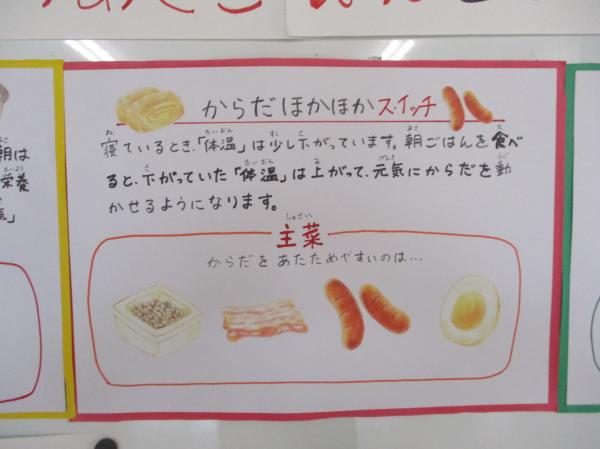 からだほかほかスイッチ
寝ているとき、「体温」は少し下がっています。朝ごはんを食べ
ると、下がっていた「体温」は上がって、元気にからだを動
かせるようになります。
主菜
からだをあたためやすいのは…
朝は
栄養
気」